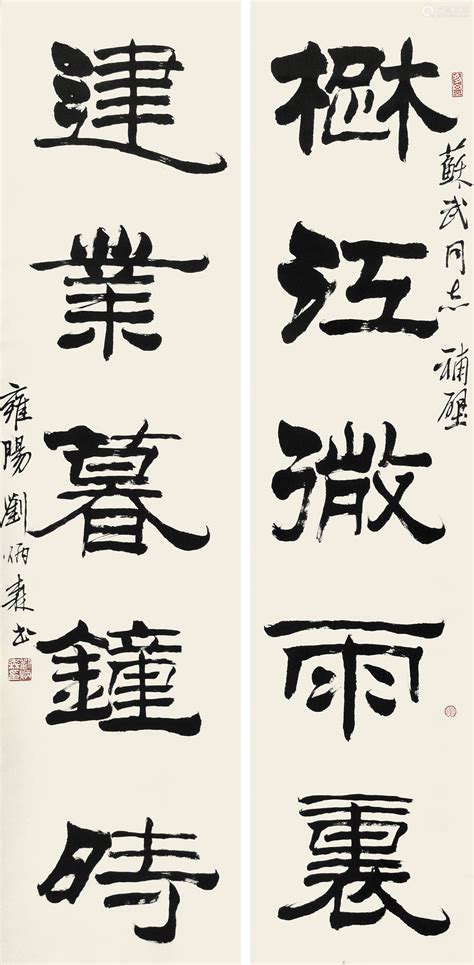 蘇武同志補壁
楚江微雨裏
建業暮鐘時
雍陽劉炳森書